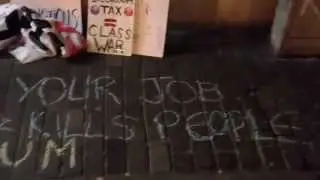 BEDROOM
TAX
=
CLASS
WAR
YOUR JOB
KILLS PEOPLE
UM